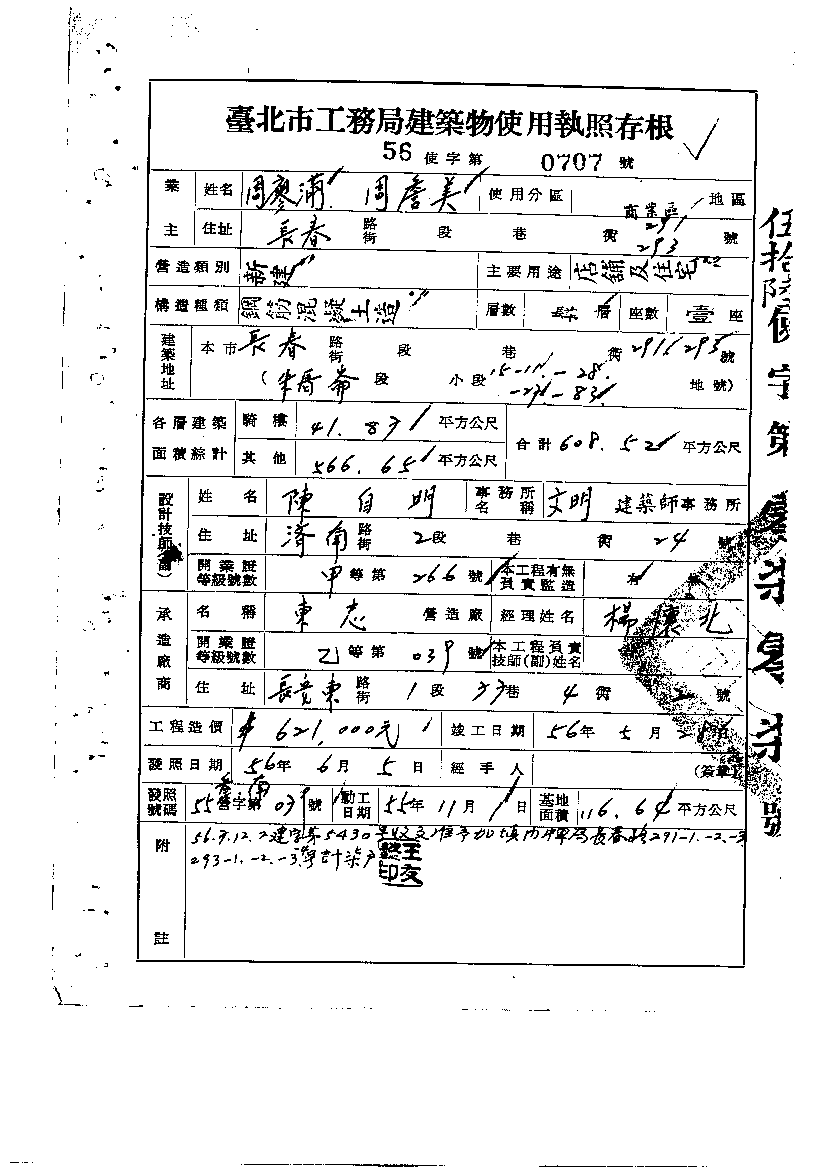 臺北市工務局建築物使用執照存根
56 使字第 0707 號
業主 姓名 周廖滿 周詹美 使用分區 商業區 地區
住址 長春 路街 段 巷 衖 291 293 號
營造類別 新建 主要用途 店舖及住宅
構造種類 鋼筋混凝土造 層數 層 座數 壹 座
建築地址 本市 長春 路街 段 巷 衖 291 293 號
段 小段 地號)
各層建築面積綜計 騎樓 41.87 平方公尺 合計 608.52 平方公尺
其他 566.65 平方公尺
設計技師(副) 姓名 陳自明 事務所名稱 文明 建築師事務所
住址 濟南 路街 2段 巷 衖 24 號
開業證等級號數 甲等第 266 號 本工程有無負責監造 有 無
承造廠商 名稱 東志 營造廠 經理姓名 楊懷北
開業證等級號數 乙等第 039 號 本工程負責技師(副)姓名
住址 長安東 路街 1段 33巷 4衖 2號
工程造價 621,000元 竣工日期 56年 5月
發照日期 56年 6月 5日 經手人 (簽章)
發照號碼 55 營字第 號 動工日期 55年 11月 1日 基地面積 116.64 平方公尺
附註 293-1.-2.-3等計柒戶
伍拾陸使字第零柒零柒號